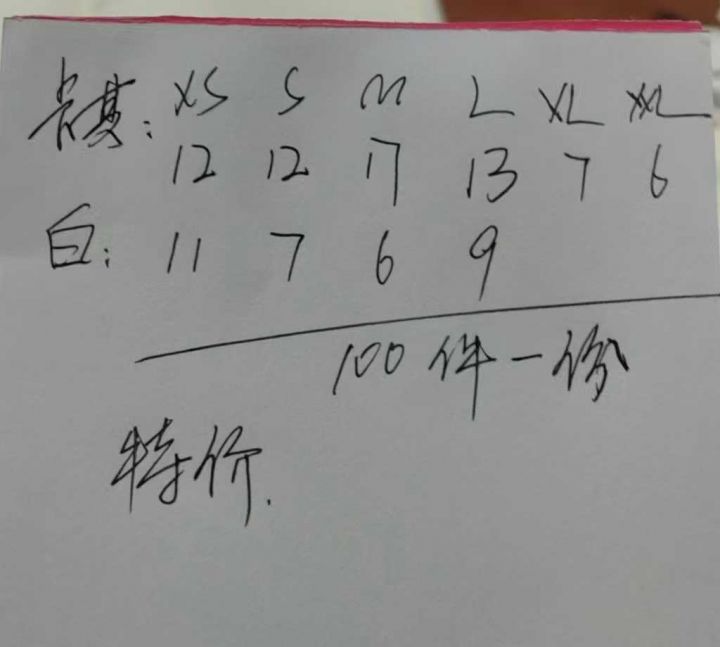 卡其: XS S M L XL XXL
12 12 17 13 7 6
白: 11 7 6 9
100件一份
特价.